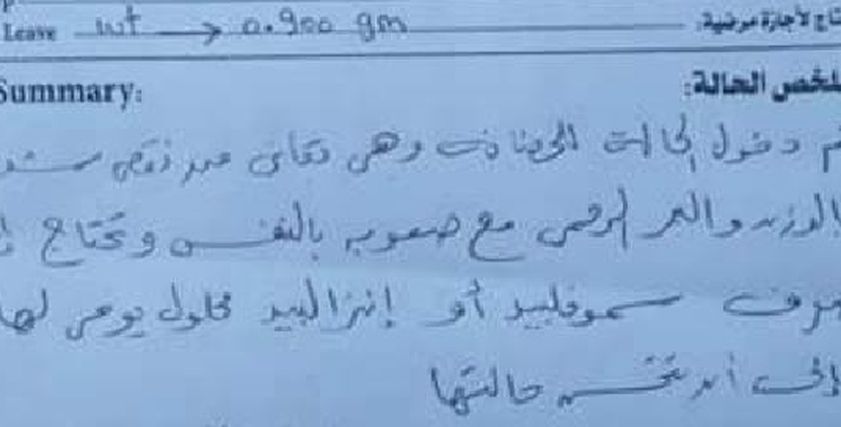 Leave wt → 0.900 gm لأجازة مرضية:
Summary: ملخص الحالة:
تم دخول الحالة الحضانة وهي تعاني من نقص شديد
الوزن والعمر الرحمي مع صعوبة بالتنفس وتحتاج إلى
صرف سموفلبيد أو إنتراليبيد محلول يومي لها
إلى أن تتحسن حالتها